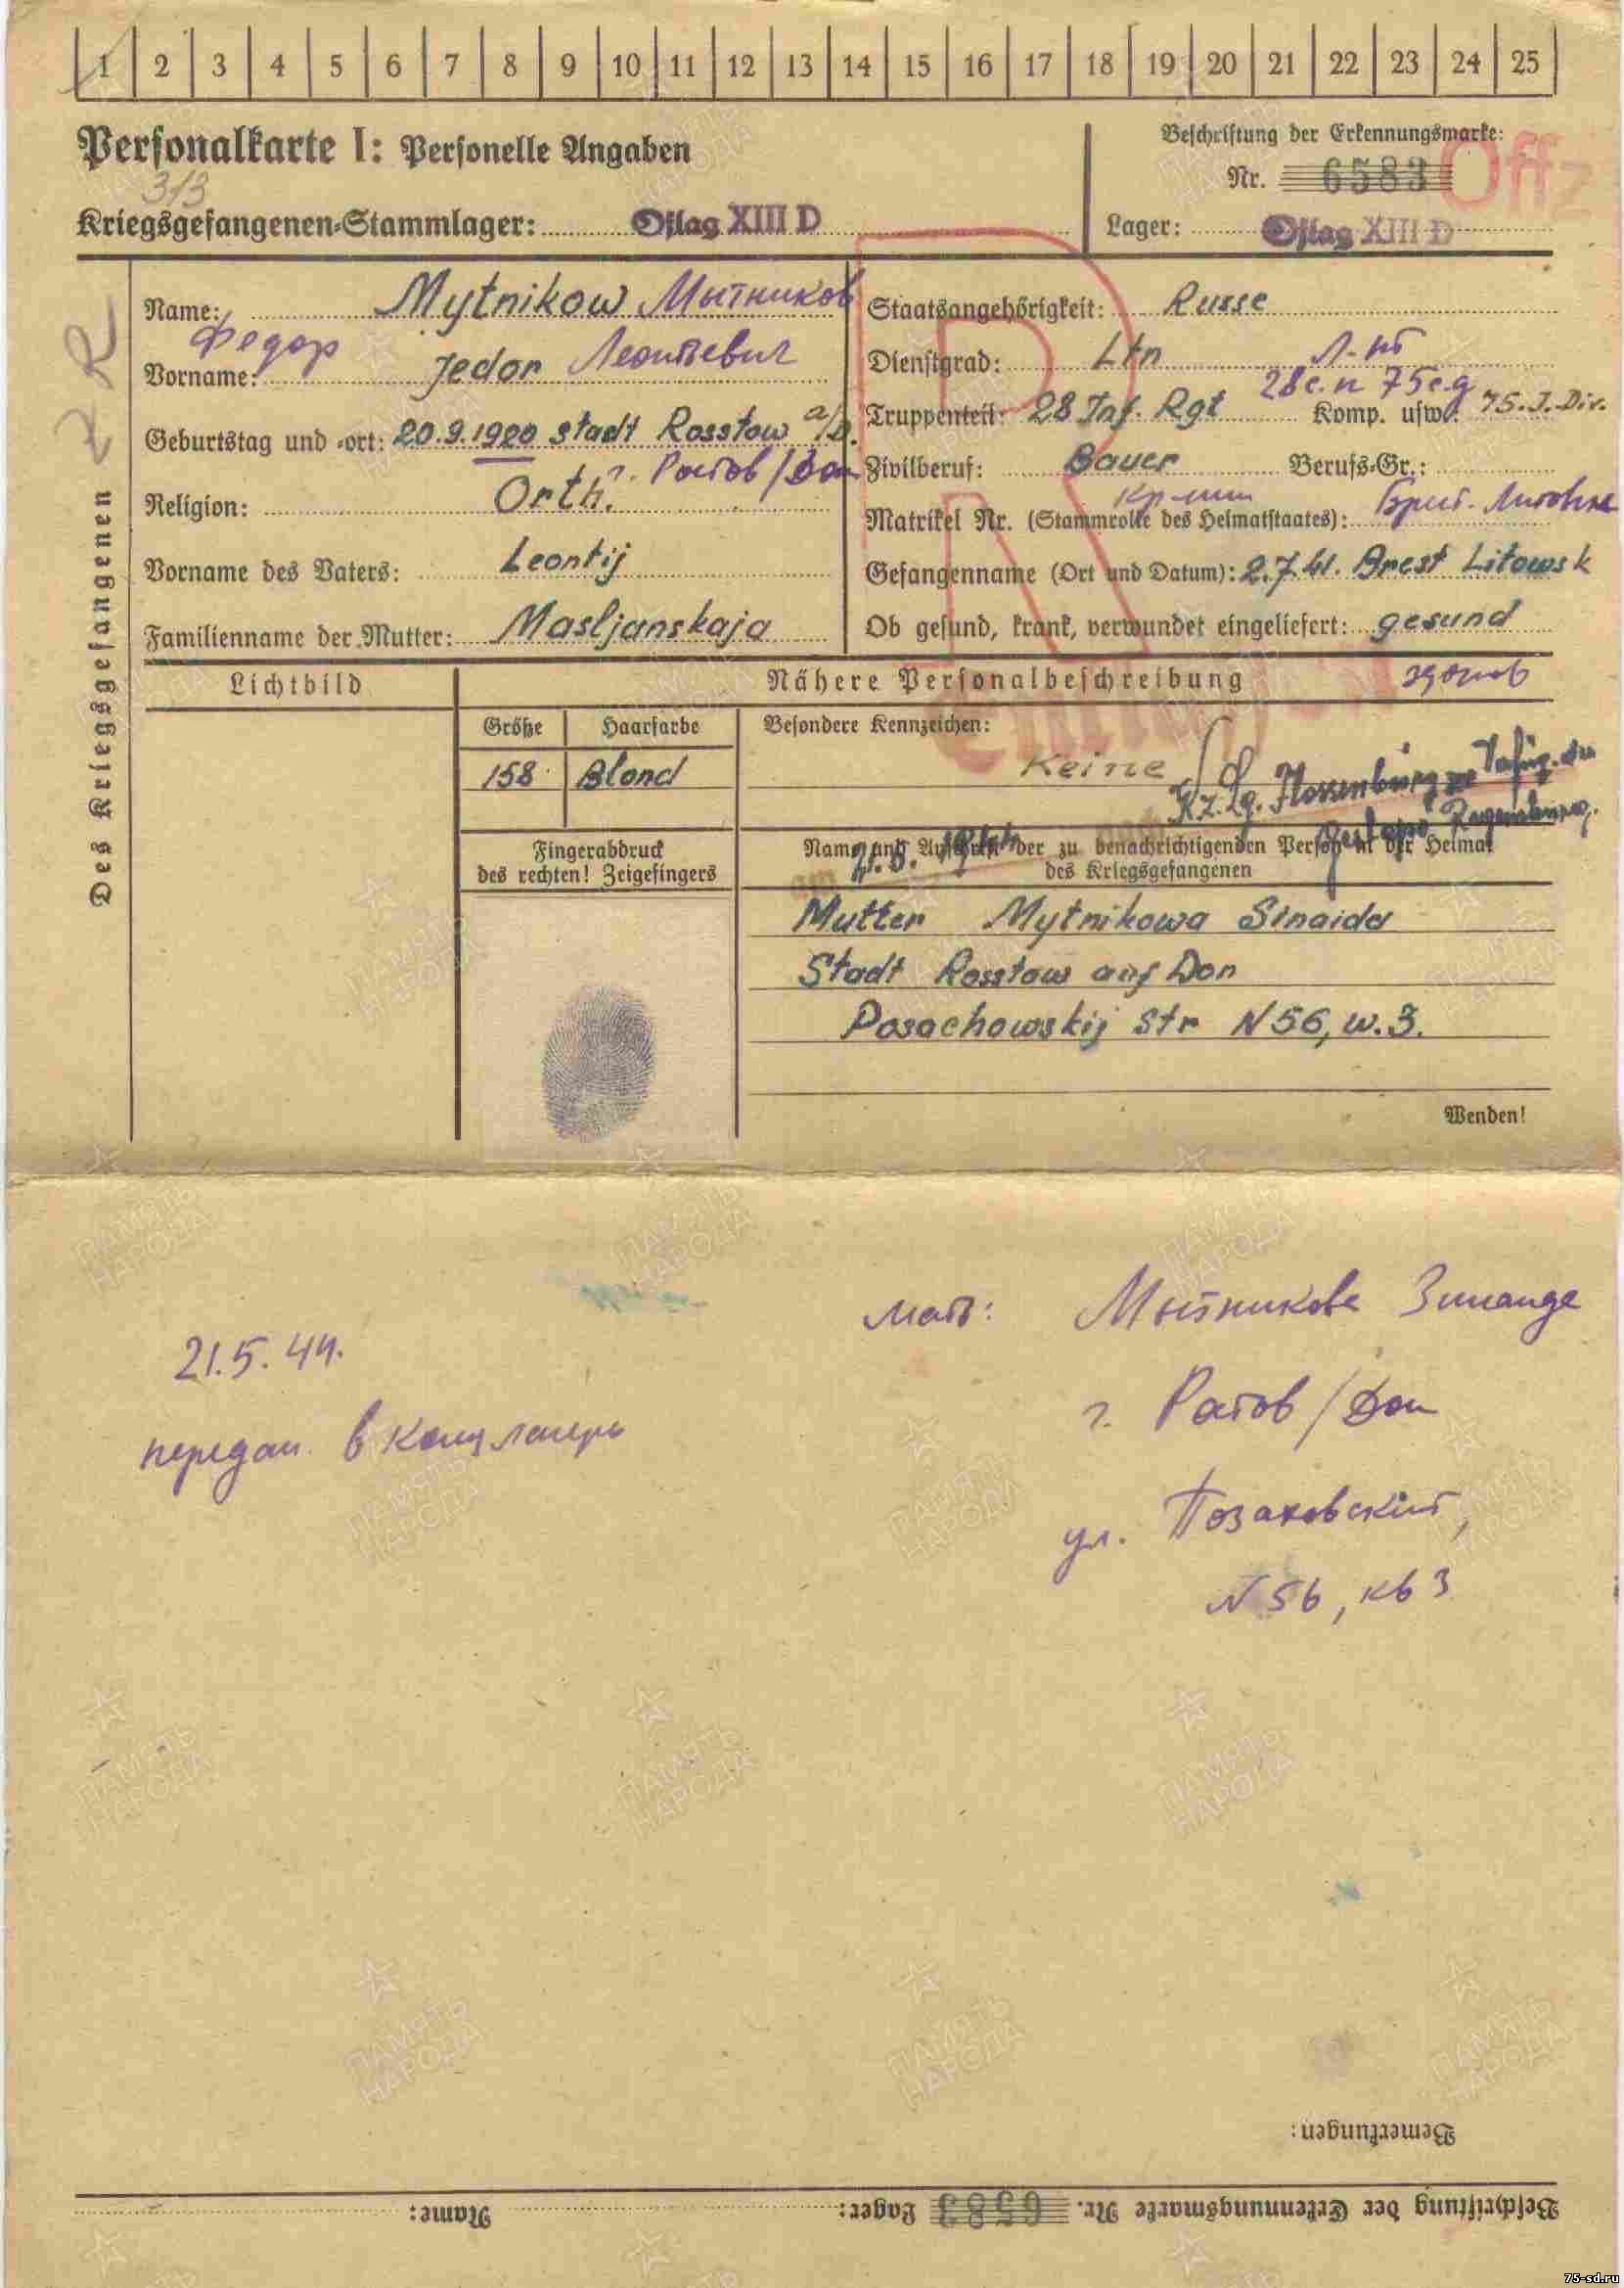 1 2 3 4 5 6 7 8 9 10 11 12 13 14 15 16 17 18 19 20 21 22 23 24 25
Personalkarte I: Personelle Angaben
Beschriftung der Erkennungsmarke:
Nr. 6583
Offz
313
Kriegsgefangenen-Stammlager: Oflag XIII D
Lager: Oflag XIII D
Des Kriegsgefangenen
R
Name: Mytnikow Мытников
Федор Леонтьевич
Vorname: Fedor
Geburtstag und -ort: 20.9.1920 Stadt Rosstow a/D.
г. Ростов/Дон
Religion: Orth.
Vorname des Vaters: Leontij
Familienname der Mutter: Masljanskaja
Staatsangehörigkeit: Russe
Dienstgrad: Ltn Л-нт
28 с.п 75 с.д
Truppenteil: 28 Inf. Rgt Komp. usw.: 75. I. Div.
Zivilberuf: Bauer Berufs-Gr.:
Matrikel Nr. (Stammrolle des Heimatstaates):
Брест-Литовске
Gefangenname (Ort und Datum): 2.7.41. Brest Litowsk
Ob gesund, krank, verwundet eingeliefert: gesund
здоров
Lichtbild
Nähere Personalbeschreibung
Größe
Haarfarbe
158
Blond
Besondere Kennzeichen:
Keine
Kz. Lg. Flossenbürg zur Verfüg. der
Gestapo Regensburg.
Fingerabdruck
des rechten! Zeigefingers
Name und Anschrift der zu benachrichtigenden Person in der Heimat
des Kriegsgefangenen
Mutter Mytnikowa Sinaida
Stadt Rosstow auf Don
Posochowskij Str N 56, w. 3.
Wenden!
21.5.44.
передан в концлагерь
мать: Мытникова Зинаида
г. Ростов/Дон
ул. Позаховский,
N 56, кв 3
Bemerkungen:
Beschriftung der Erkennungsmarke Nr. 6583 Lager: Name:
ПАМЯТЬ НАРОДА
75-sd.ru